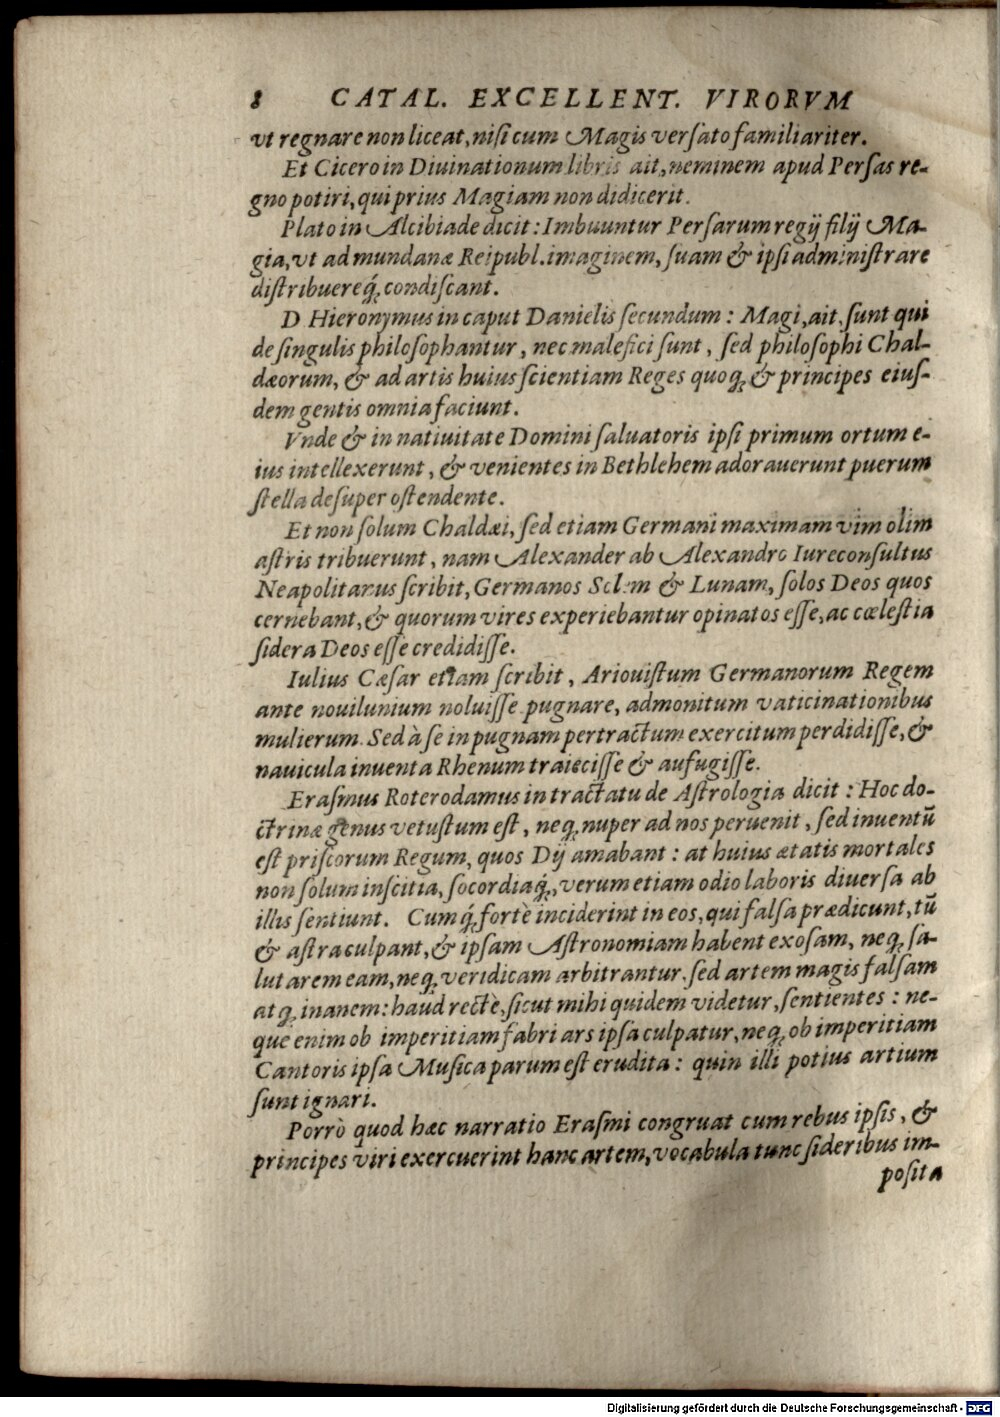 8 CATAL. EXCELLENT. VIRORVM
vt regnare non liceat, nisi cum Magis versato familiariter.
Et Cicero in Diuinationum libris ait, neminem apud Persas re-
gno potiri, qui prius Magiam non didicerit.
Plato in Alcibiade dicit: Imbuuntur Persarum regij filij Ma-
gia, vt ad mundanæ Reipubl. imaginem, suam & ipsi administrare
distribuereq́; condiscant.
D Hieronymus in caput Danielis secundum: Magi, ait, sunt qui
de singulis philosophantur, nec malefici sunt, sed philosophi Chal-
dæorum, & ad artis huius scientiam Reges quoq; & principes eius-
dem gentis omnia faciunt.
Vnde & in natiuitate Domini saluatoris ipsi primum ortum e-
ius intellexerunt, & venientes in Bethlehem adorauerunt puerum
stella desuper ostendente.
Et non solum Chaldæi, sed etiam Germani maximam vim olim
astris tribuerunt, nam Alexander ab Alexandro Iureconsultus
Neapolitanus scribit, Germanos Solem & Lunam, solos Deos quos
cernebant, & quorum vires experiebantur opinatos esse, ac cœlestia
sidera Deos esse credidisse.
Iulius Cæsar etiam scribit, Ariouistum Germanorum Regem
ante nouilunium noluisse pugnare, admonitum vaticinationibus
mulierum. Sed à se in pugnam pertractum exercitum perdidisse, &
nauicula inuenta Rhenum traiecisse & aufugisse.
Erasmus Roterodamus in tractatu de Astrologia dicit: Hoc do-
ctrinæ genus vetustum est, neq; nuper ad nos peruenit, sed inuentũ
est priscorum Regum, quos Dij amabant: at huius ætatis mortales
non solum inscitia, socordiaq́;, verum etiam odio laboris diuersa ab
illis sentiunt. Cumq́; fortè inciderint in eos, qui falsa prædicunt, tũ
& astra culpant, & ipsam Astronomiam habent exosam, neq; sa-
lutarem eam, neq; veridicam arbitrantur. sed artem magis falsam
atq; inanem: haud rectè, sicut mihi quidem videtur, sentientes: ne-
que enim ob imperitiam fabri ars ipsa culpatur, neq; ob imperitiam
Cantoris ipsa Musica parum est erudita: quin illi potius artium
sunt ignari.
Porrò quod hæc narratio Erasmi congruat cum rebus ipsis, &
principes viri exercuerint hanc artem, vocabula tunc sideribus im-
posita
Digitalisierung gefördert durch die Deutsche Forschungsgemeinschaft - DFG